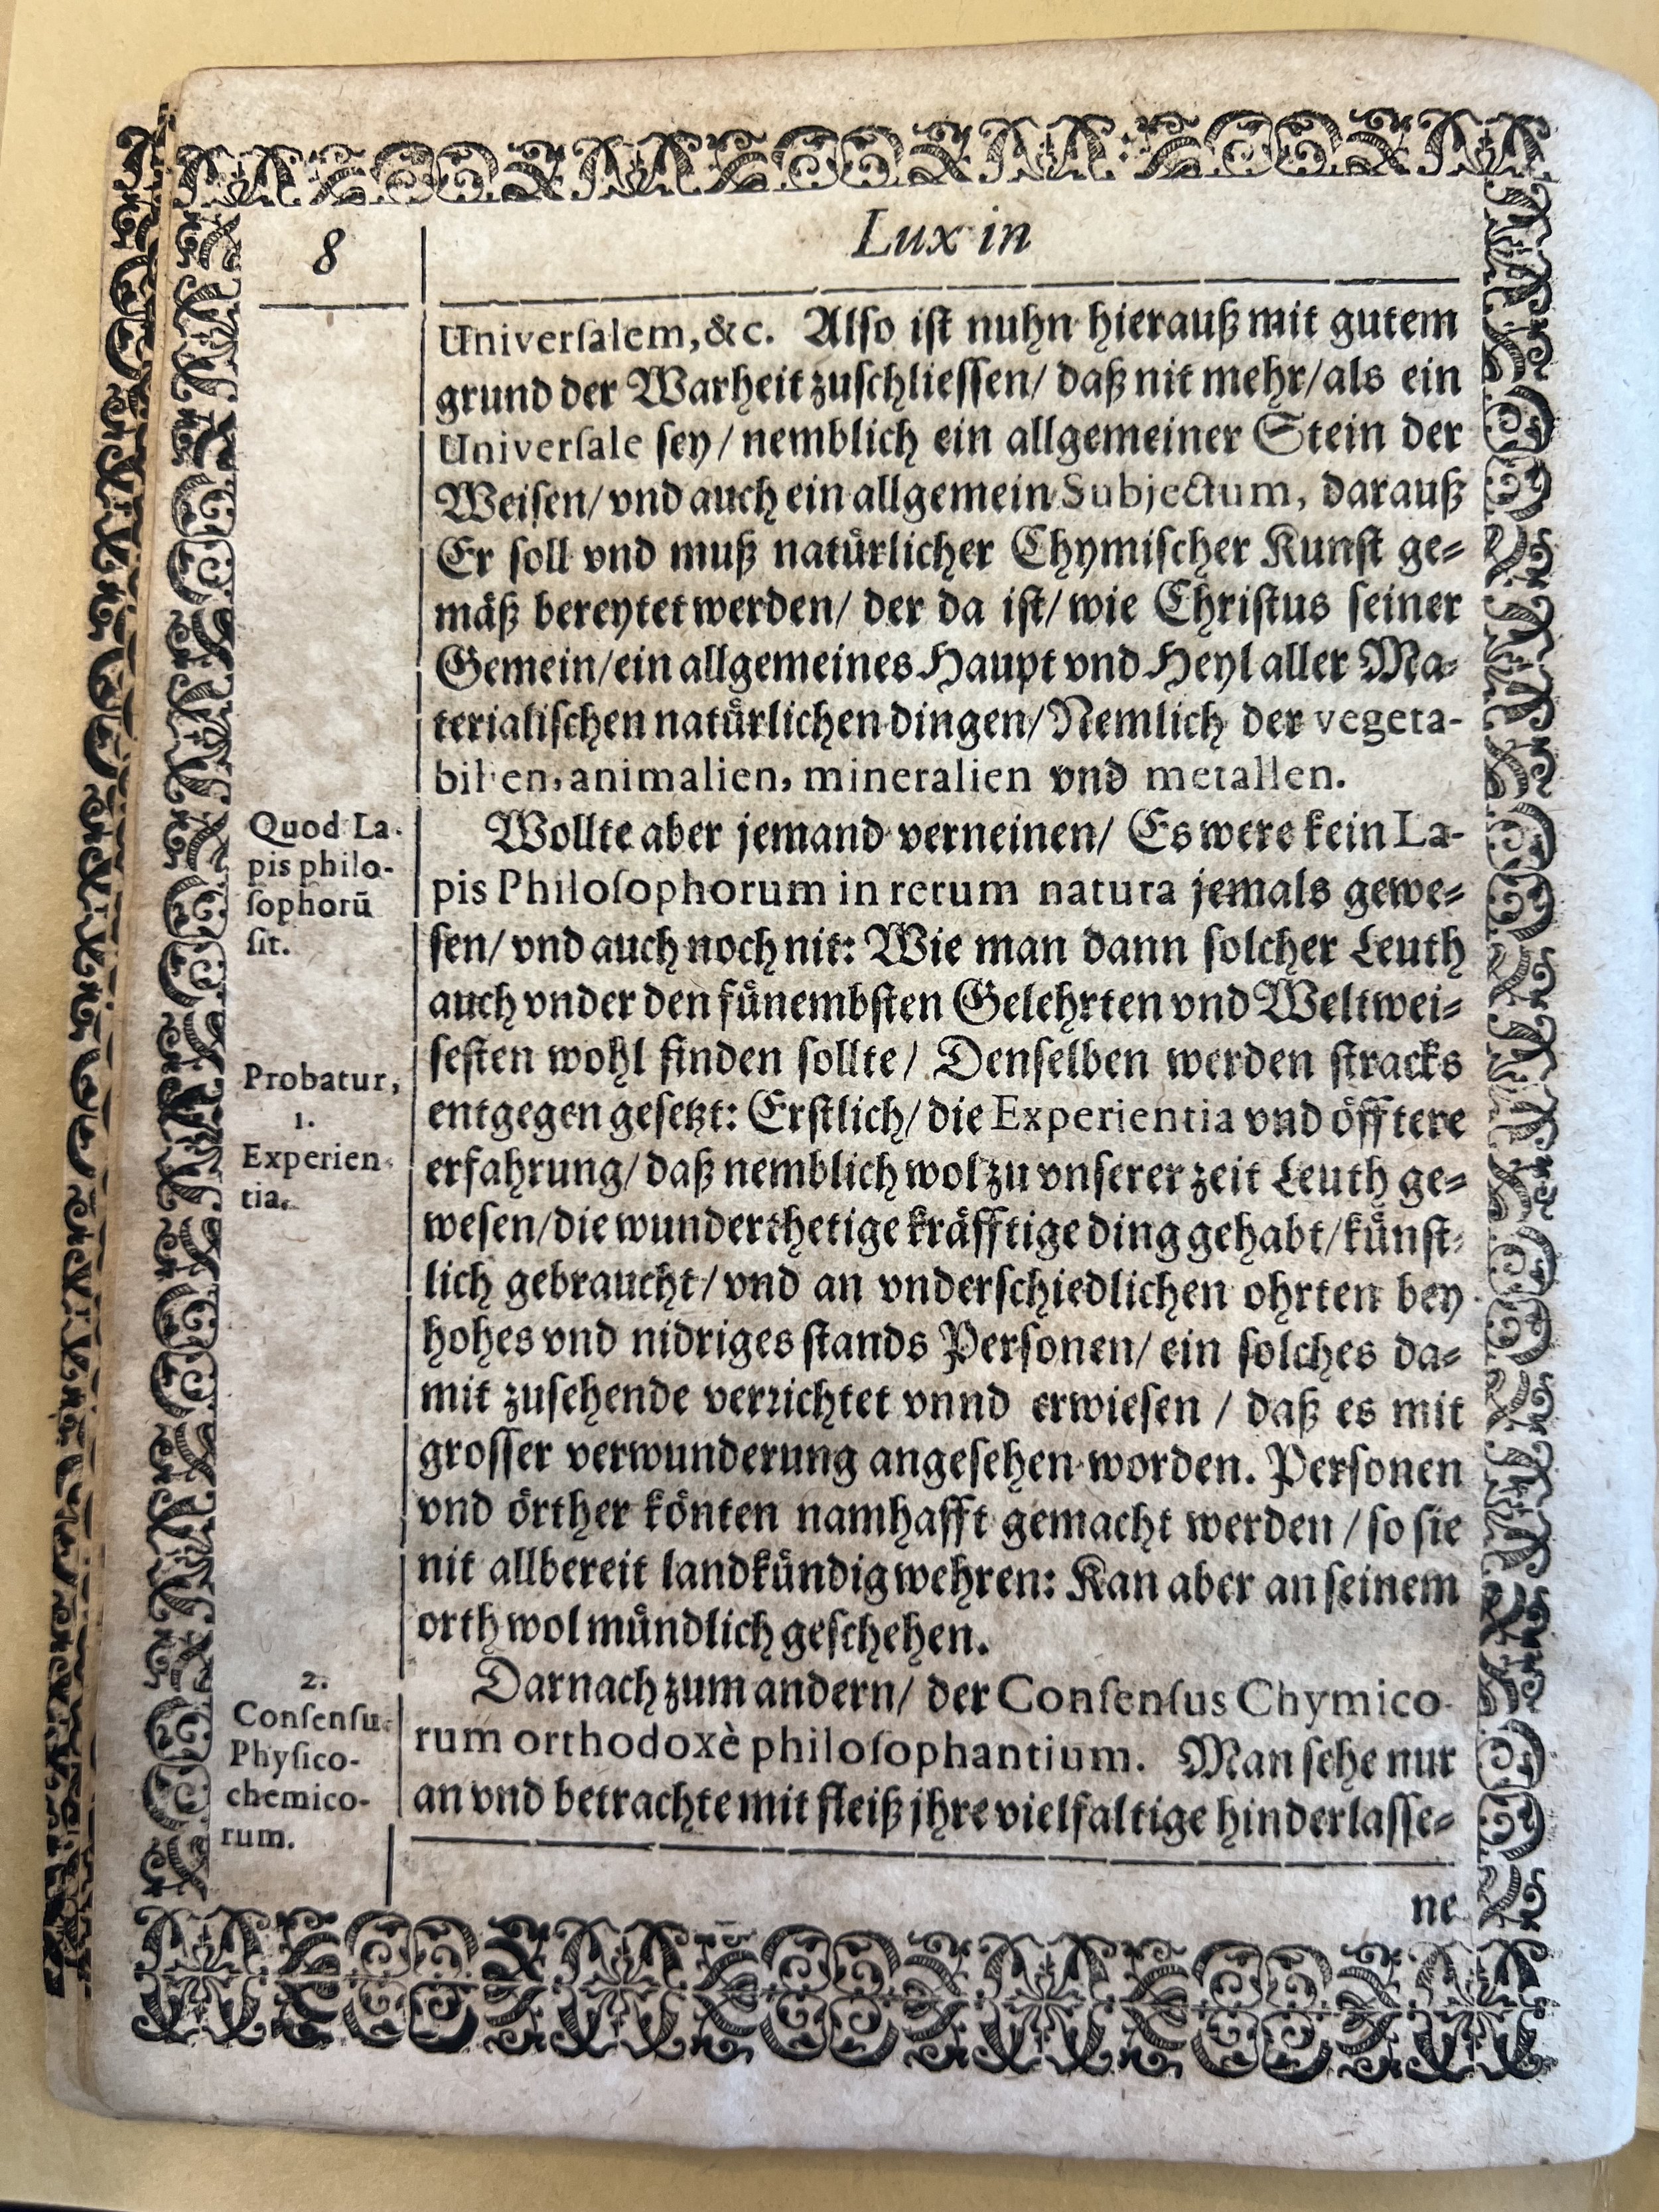 8
Lux in
Universalem, &c. Also ist nuhn hierauß mit gutem
grund der Warheit zuschliessen/ daß nit mehr/ als ein
Universale sey/ nemblich ein allgemeiner Stein der
Weisen/ vnd auch ein allgemein Subjectum, darauß
Er soll vnd muß natůrlicher Chymischer Kunst ge=
mäß bereytet werden/ der da ist/ wie Christus seiner
Gemein/ ein allgemeines Haupt vnd Heyl aller Ma=
terialischen natůrlichen dingen/ Nemlich der vegeta-
bilien, animalien, mineralien vnd metallen.
Quod La-
pis philo-
sophorũ
sit.
Wollte aber jemand verneinen/ Es were kein La-
pis Philosophorum in rerum natura jemals gewe=
sen/ vnd auch noch nit: Wie man dann solcher Leuth
auch vnder den fůnembsten Gelehrten vnd Weltwei=
sesten wohl finden sollte/ Denselben werden stracks
Probatur,
1.
Experien-
tia.
entgegen gesetzt: Erstlich/ die Experientia vnd öfftere
erfahrung/ daß nemblich wol zu vnserer zeit Leuth ge=
wesen/ die wunderthetige kräfftige ding gehabt/ kůnst=
lich gebraucht/ vnd an vnderschiedlichen ohrten bey
hohes vnd nidriges stands Personen/ ein solches da=
mit zusehende verrichtet vnnd erwiesen / daß es mit
grosser verwunderung angesehen worden. Personen
vnd örther könten namhafft gemacht werden / so sie
nit allbereit landkůndig wehren: Kan aber an seinem
orth wol můndlich geschehen.
2.
Consensu
Physico-
chemico-
rum.
Darnach zum andern/ der Consensus Chymico-
rum orthodoxè philosophantium. Man sehe nur
an vnd betrachte mit fleiß jhre vielfaltige hinderlasse=
ne